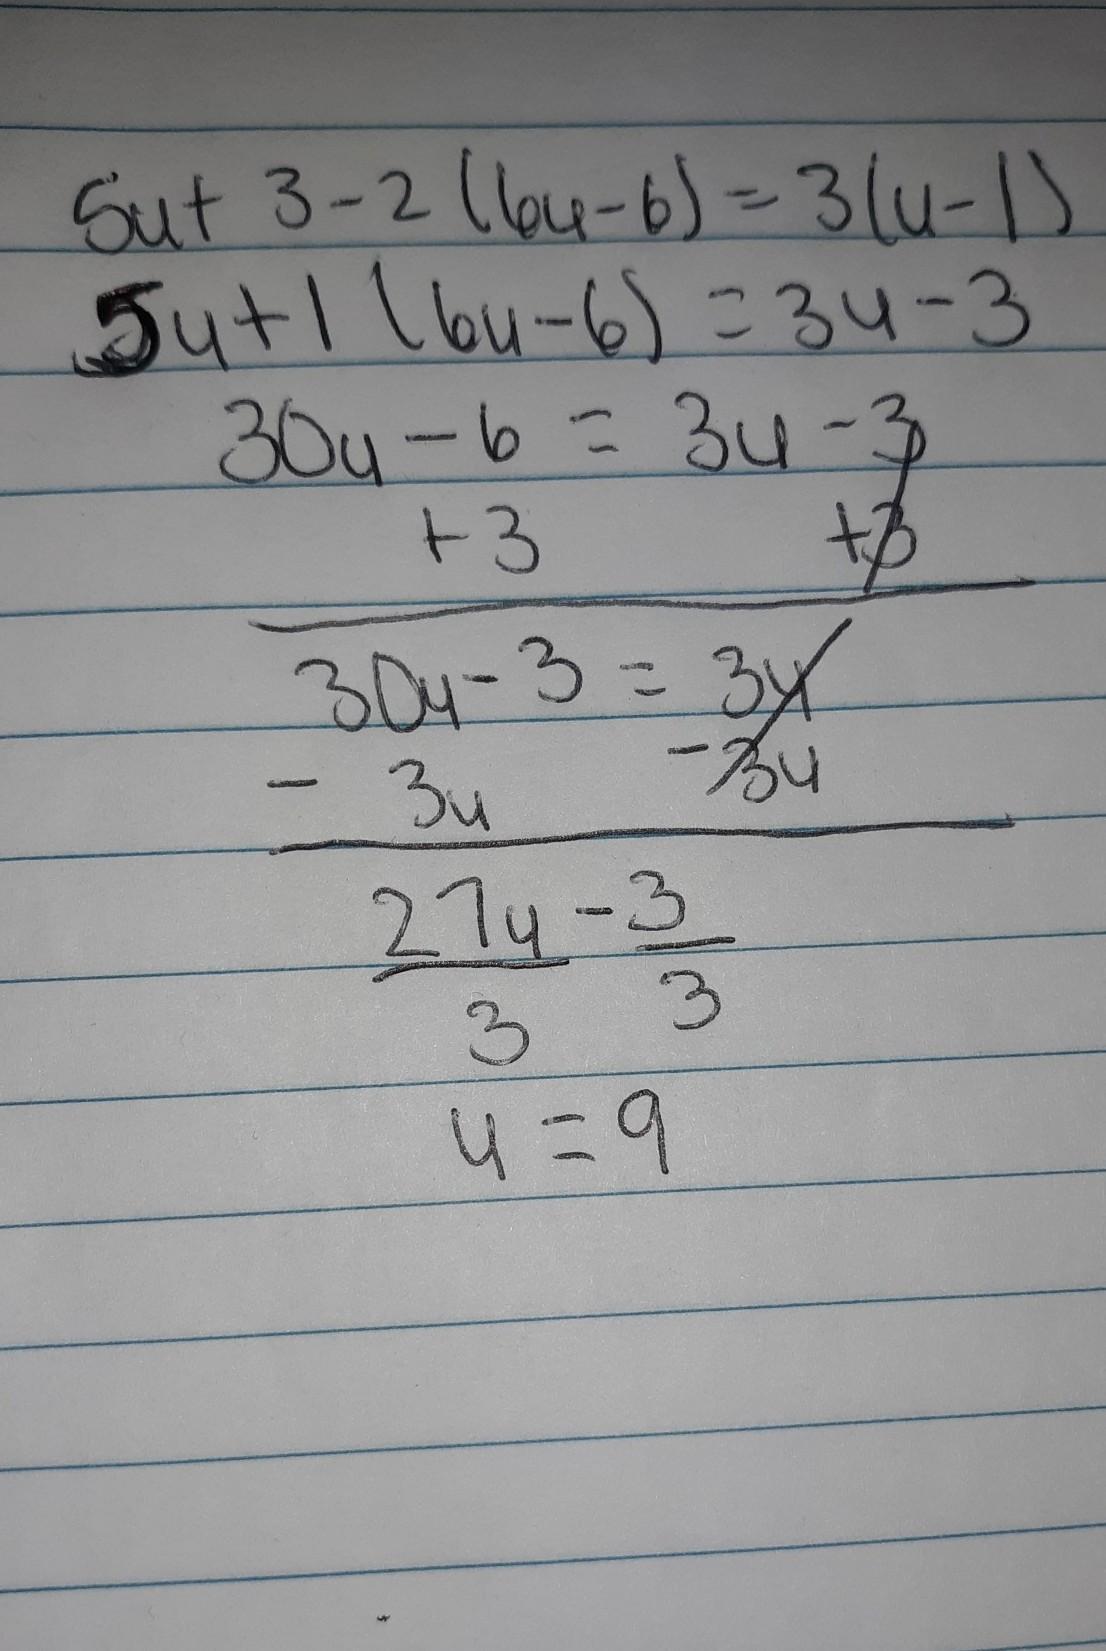 5u+ 3-2(6u-6)=3(u-1)
5u+1(6u-6)=3u-3
30u-6=3u-3
+3 +3
30u-3=3u
- 3u -3u
27u-3
3 3
u=9